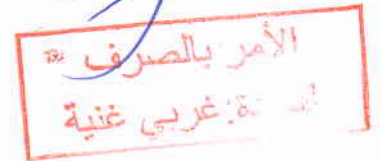 الأمر بالصرف
غربي غنية